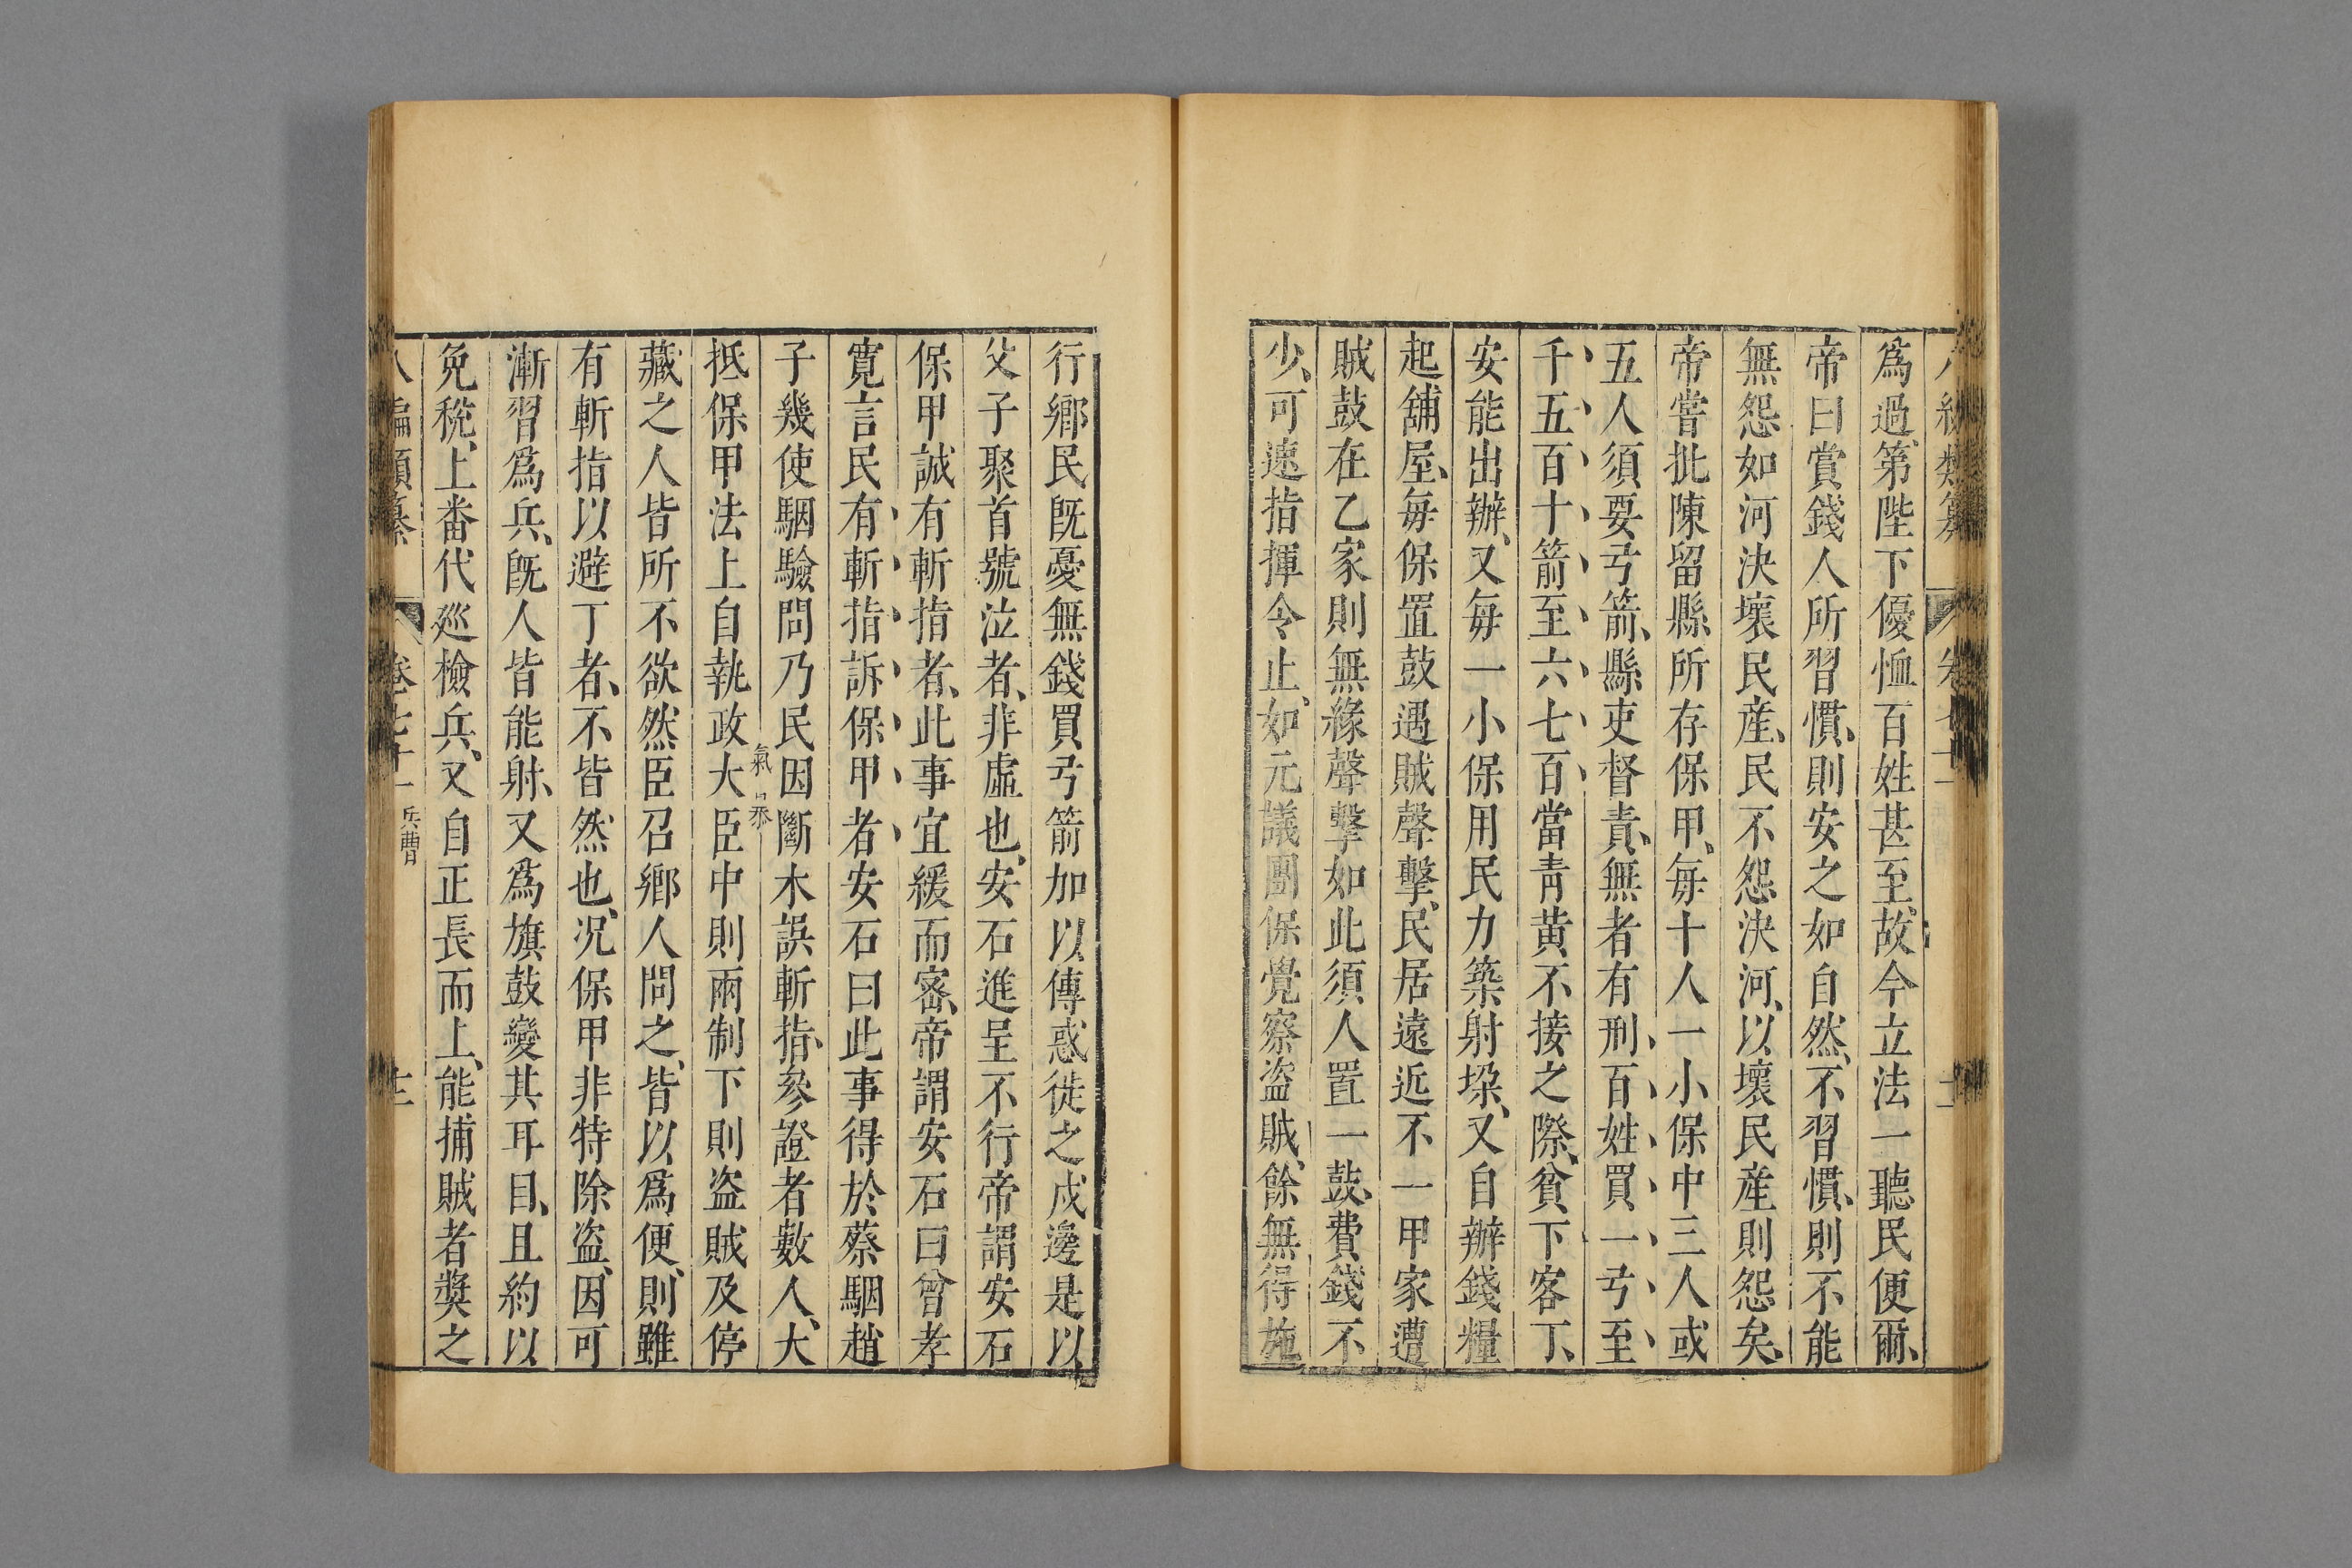 爲過、第陛下優恤百姓甚至、故今立法一聽民便爾、
帝曰賞錢人所習慣、則安之如自然、不習慣、則不能
無怨如河決壞民産、民不怨決河、以壞民産則怨矣、
帝嘗批陳留縣所存保甲、每十人一小保中三人或
五人須要弓箭、縣吏督責、無者有刑、百姓買一弓至
千五百十箭至六七百當靑黄不接之際、貧下客丁、
安能出辦、又每一小保用民力築射垛、又自辦錢糧
起舖屋、每保置鼓遇賊聲擊、民居遠近不一甲家遭
賊鼓在乙家則無緣聲擊如此須人置一鼓、費錢不
少、可速指揮令止、如元議團保覺察盜賊、餘無得施
行鄉民旣憂無錢買弓箭加以傳惑徙之戍邊是以
父子聚首號泣者、非虛也、安石進呈不行帝謂安石
保甲誠有斬指者、此事宜緩而密、帝謂安石曰曾孝
寬言民有斬指訴保甲者安石曰此事得於蔡駰趙
子幾使駰驗問乃民因斷木誤斬指、參證者數人、大
抵保甲法上自執政大臣中則兩制下則盜賊及停
藏之人皆所不欲然臣召鄉人問之、皆以爲便、則雖
有斬指以避丁者、不皆然也、况保甲非特除盜、因可
漸習爲兵、旣人皆能射、又爲旗鼓變其耳目、且約以
免稅、上番代廵檢兵、又自正長而上、能捕賊者獎之
八編類纂 卷七十一 兵曹 十三